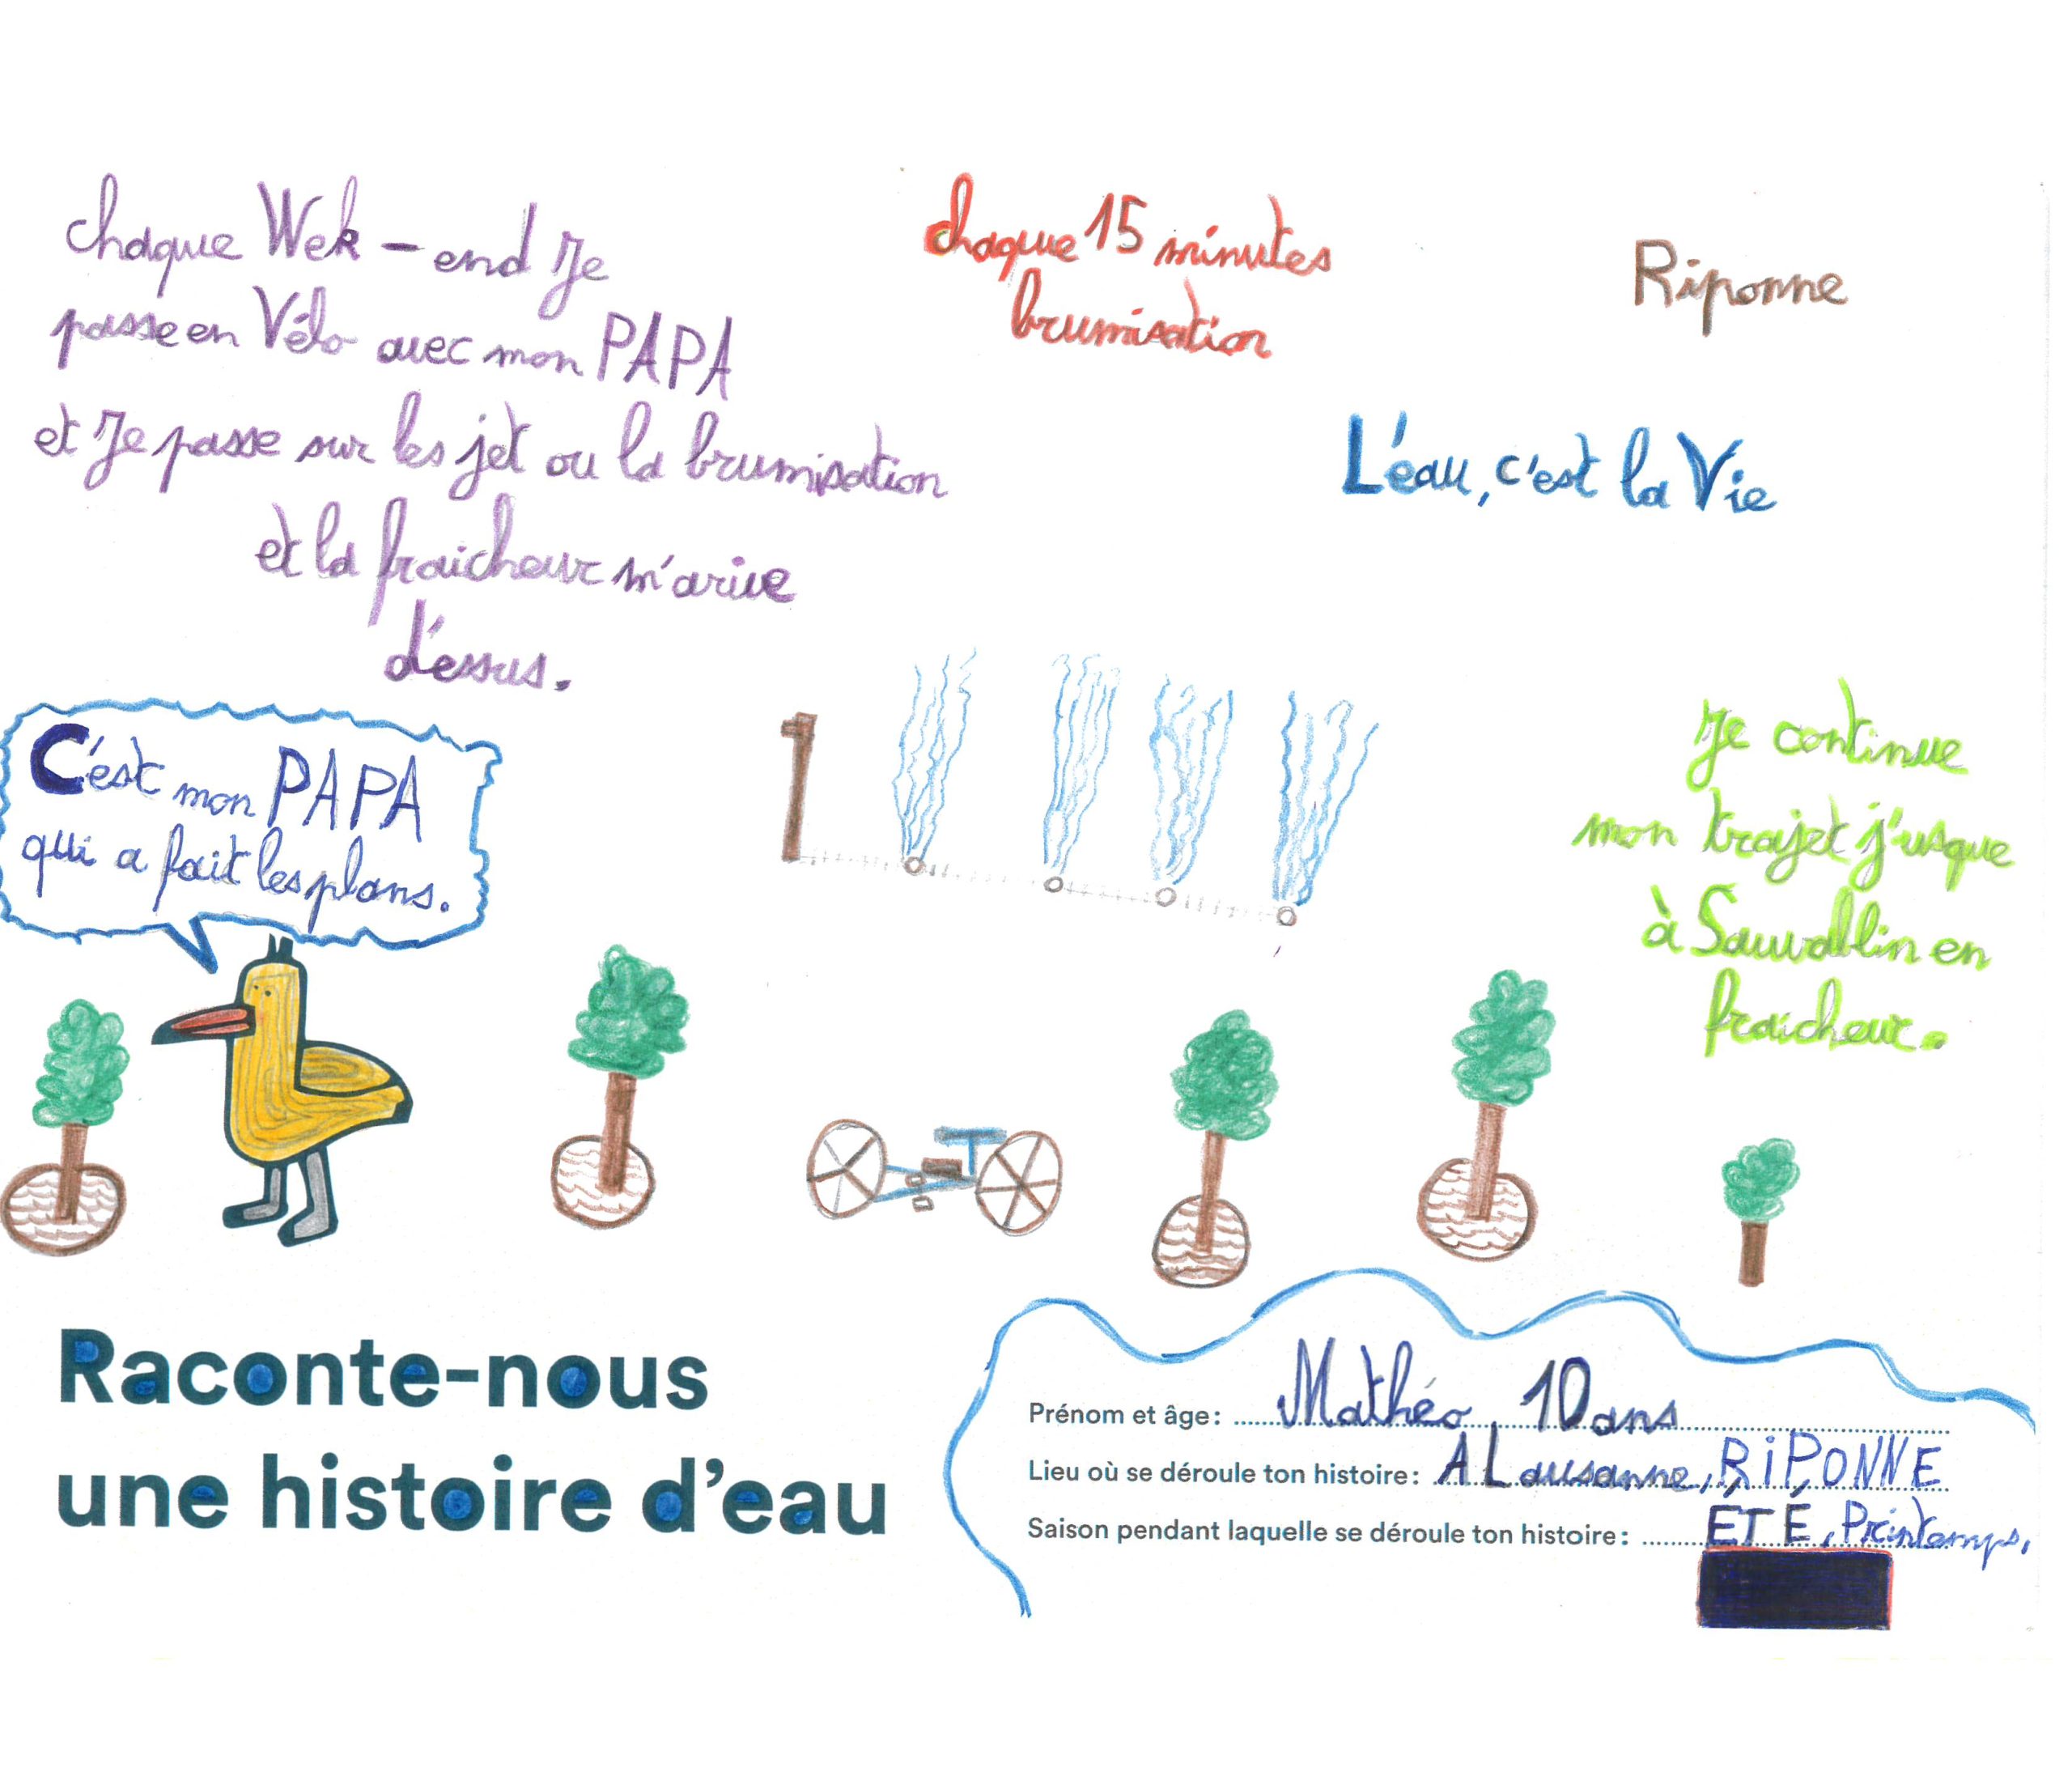 chaque Wek-end Je
passe en Vélo avec mon PAPA
et Je passe sur les jet ou la brumisation
et la fraicheur m'arive
d'essus.
chaque 15 minutes
brumisation
Riponne
L'éau, c'est la Vie
C'est mon PAPA
qui a fait les plans.
1
Je continue
mon trajet j'usque
à Sauvablin en
fraicheur.
Raconte-nous
une histoire d'eau
Prénom et âge: Mathéo, 10 ans
Lieu où se déroule ton histoire: A Lausanne, RiPONNE
Saison pendant laquelle se déroule ton histoire: ÉTÉ, Printemps,